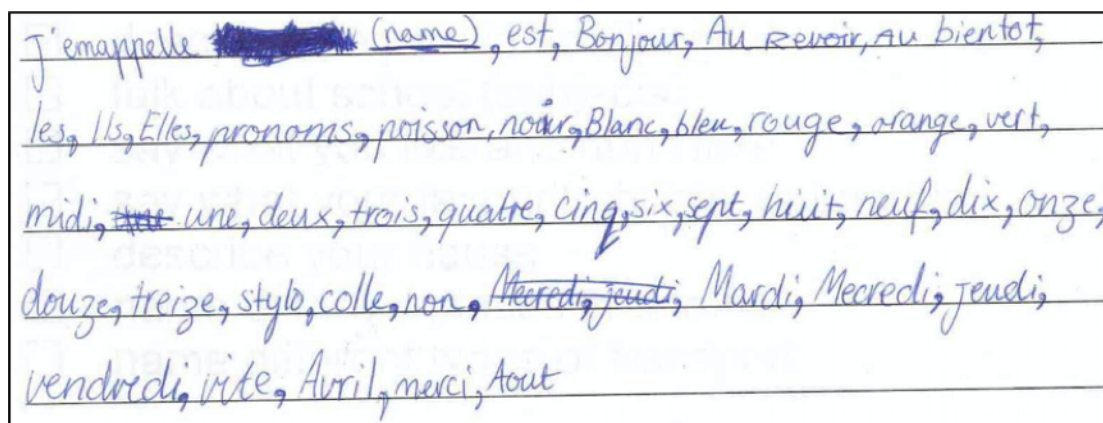 J'emappelle (name), est, Bonjour, Au Revoir, Au bientot,
les, Ils, Elles, pronoms, poisson, noir, Blanc, bleu, rouge, orange, vert,
midi, une, deux, trois, quatre, cinq, six, sept, huit, neuf, dix, onze,
douze, treize, stylo, colle, non, Mecredi, jeudi, Mardi, Mecredi, jeudi,
vendredi, vite, Avril, merci, Aout